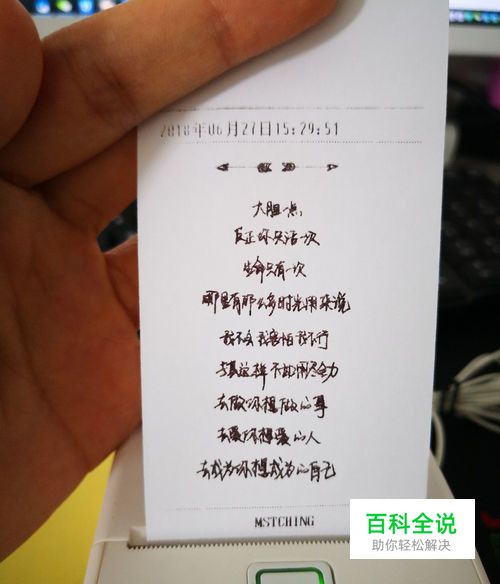 2018年06月27日15:29:51
大胆一点,
反正你只活一次
生命只有一次
哪里有那么多时光用来说
我不会我害怕我不行
与其这样不如用尽全力
去做你想做的事
去爱你想爱的人
去成为你想成为的自己
MSTCHING
百科全说
助你轻松解决